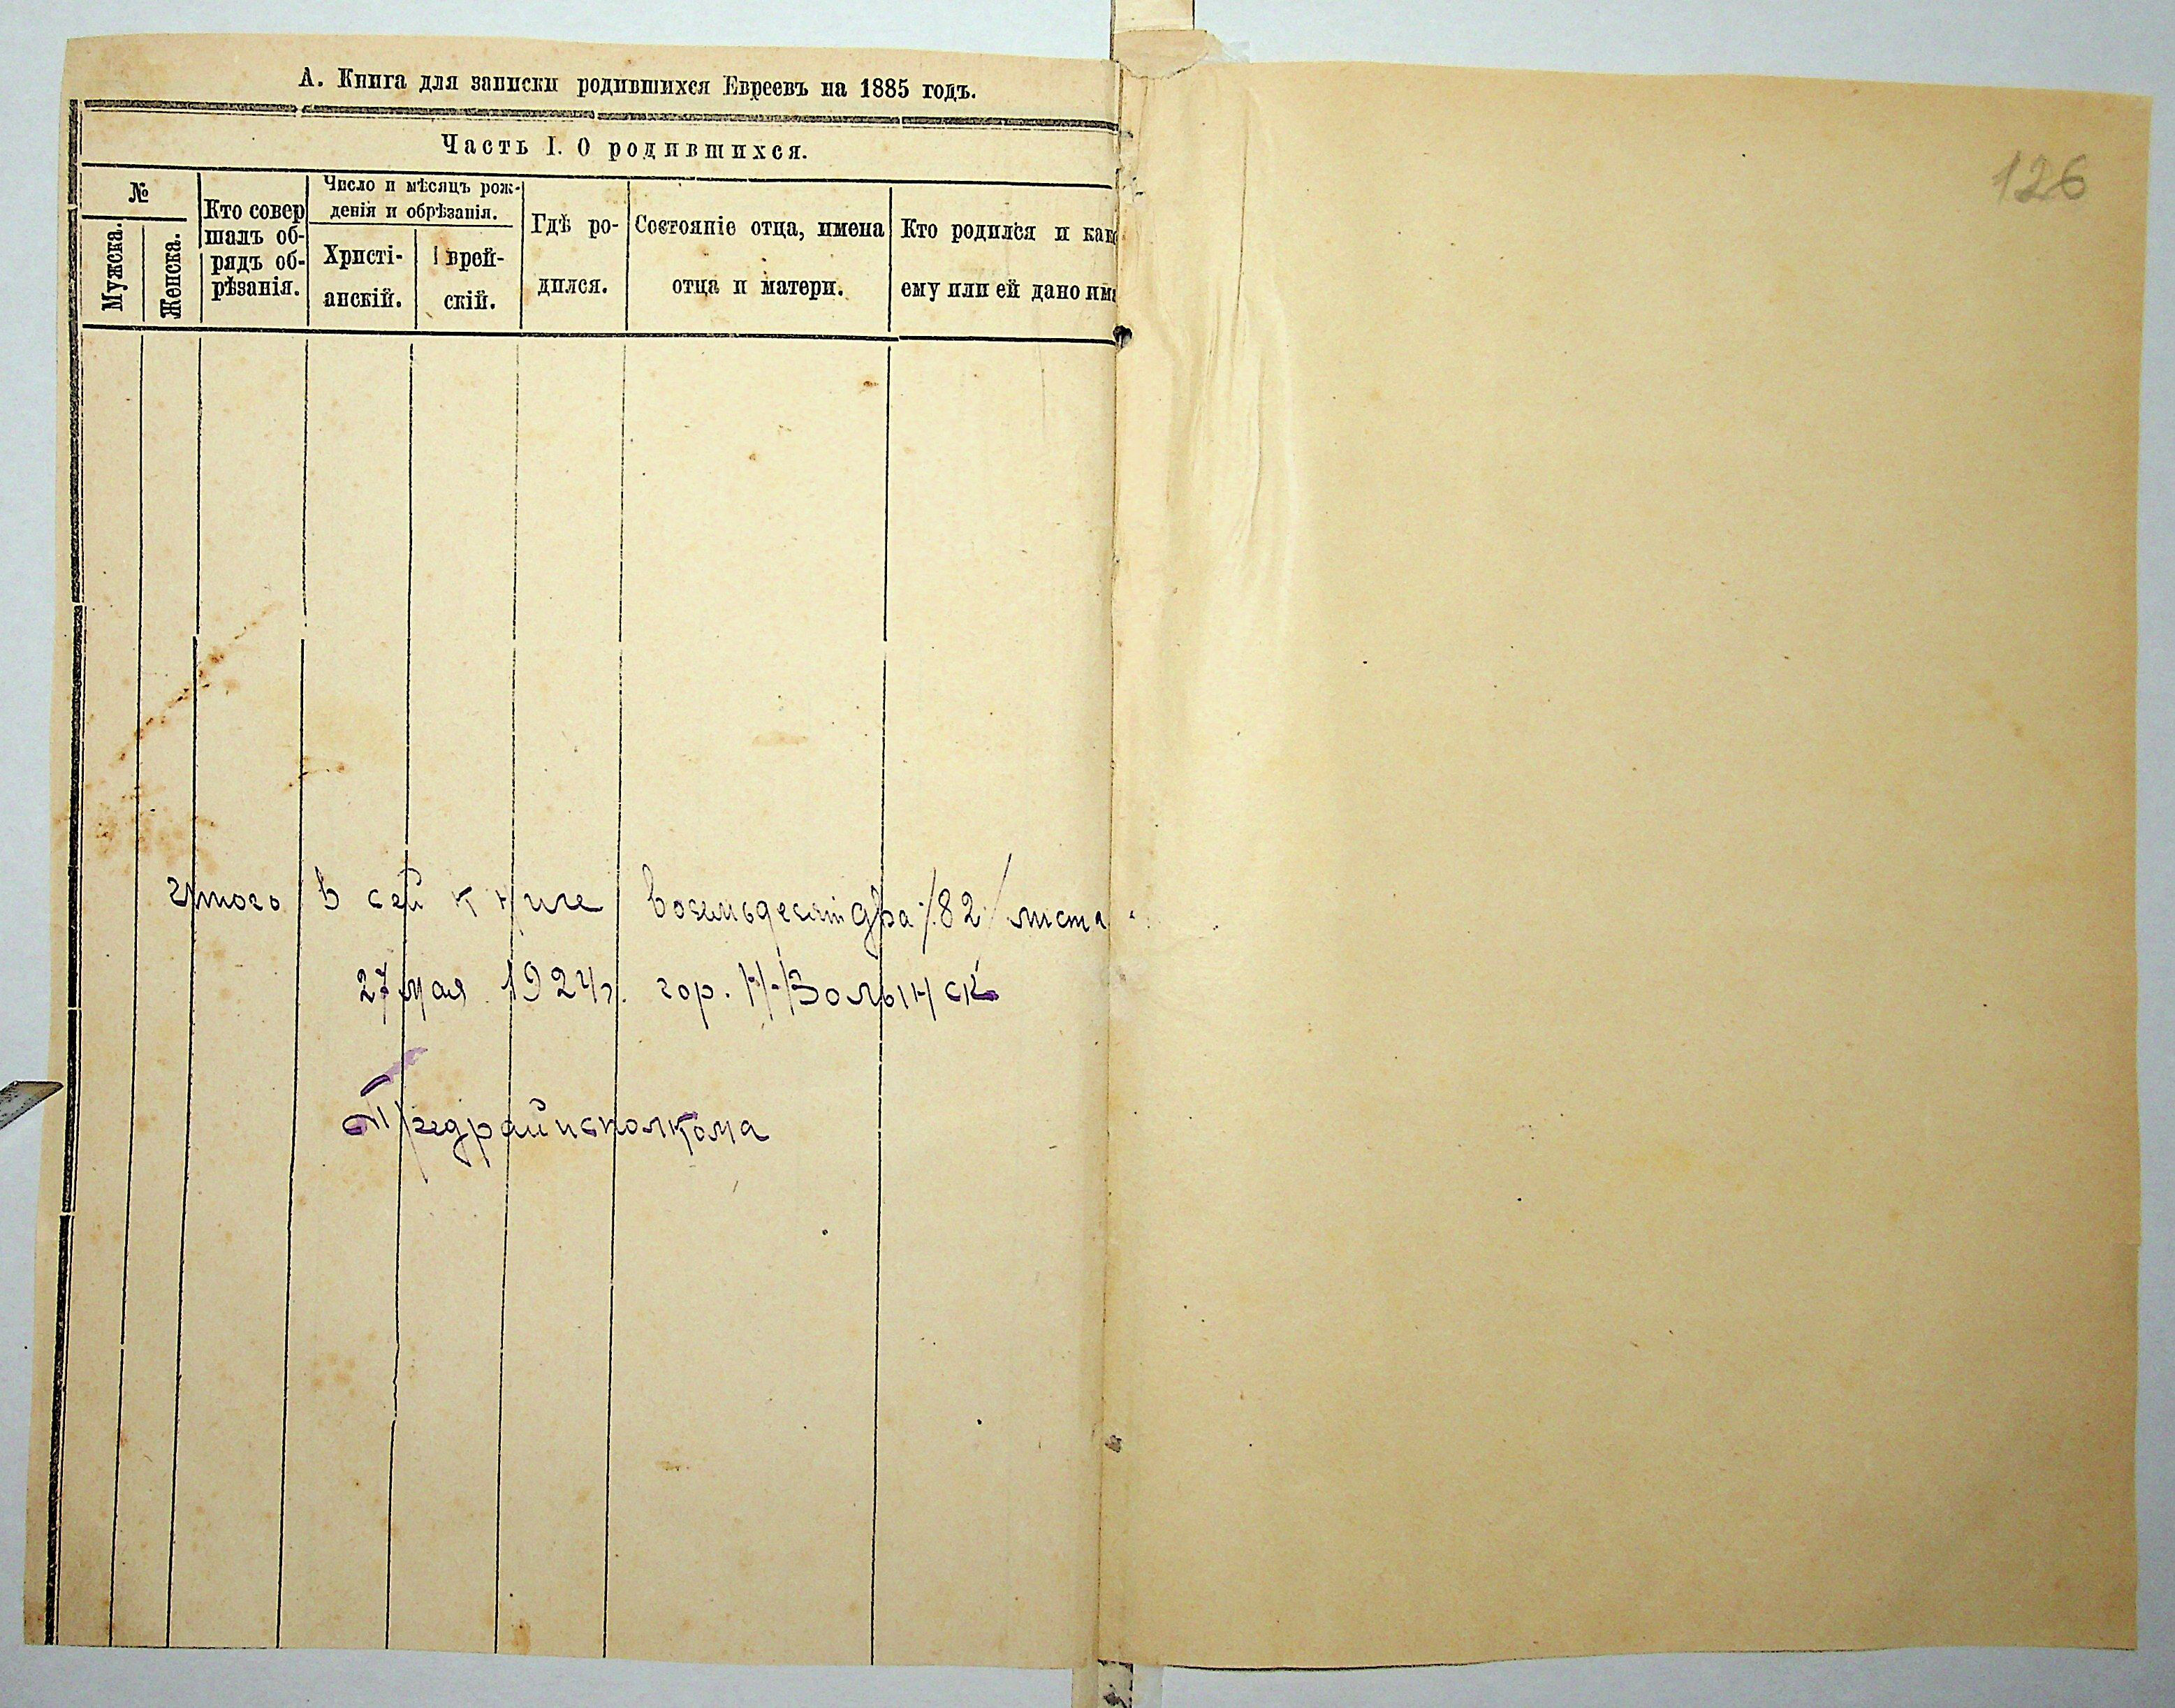 А. Книга для записки родившихся Евреевъ на 1885 годъ.
Часть I. О родившихся.
№
Мужска.
Женска.
Кто совер
шалъ об-
рядъ об-
рѣзанія.
Число и мѣсяцъ рож-
денія и обрѣзанія.
Христі-
анскій.
врей-
скій.
Гдѣ ро-
дился.
Состояніе отца, имена
отца и матери.
Кто родился и как
ему или ей дано им
126
Итого в сей книге восемьдесят два /82/ листа
27 мая 1924 г. гор. Н-Волынск
Предрайисполкома